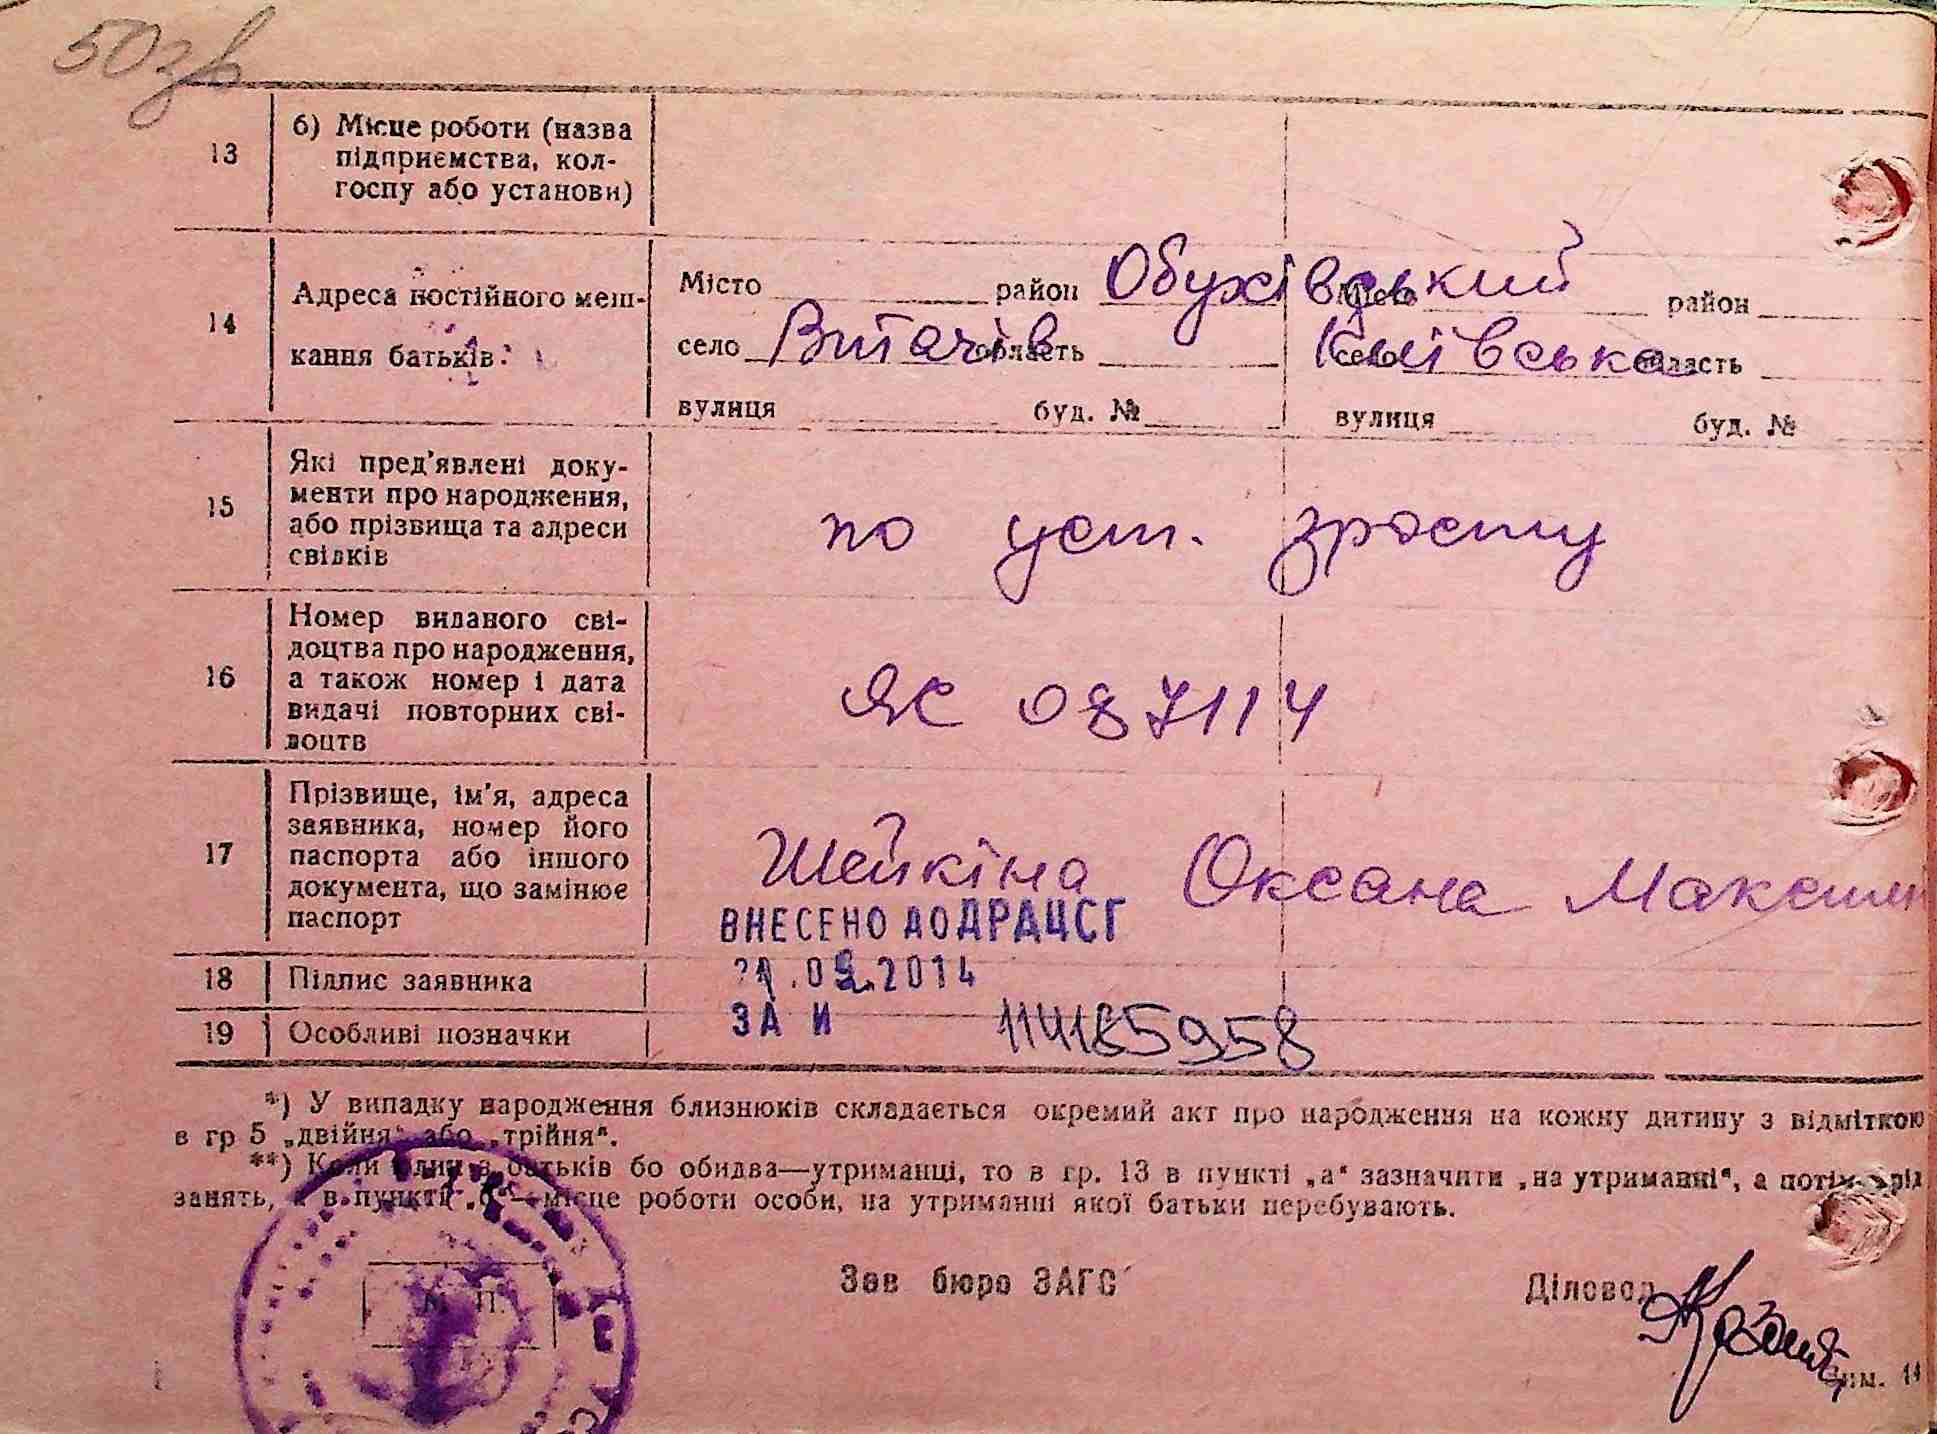 50зв
13
б) Місце роботи (назва
підприємства, кол-
госпу або установи)
14
Адреса постійного меш-
кання батьків
Місто район Обухівський Місто район
село Витачів область Київська село область
вулиця буд. № вулиця буд. №
15
Які пред'явлені доку-
менти про народження,
або прізвища та адреси
свідків
по уст. зросту
16
Номер виданого сві-
доцтва про народження,
а також номер і дата
видачі повторних сві-
доцтв
ЯС 087114
17
Прізвище, ім'я, адреса
заявника, номер його
паспорта або іншого
документа, що замінює
паспорт
Шейкіна Оксана Максим
ВНЕСЕНО ДО ДРАЦСГ
18
Підпис заявника
.2014
19
Особливі позначки
ЗА И 114185958
*) У випадку народження близнюків складається окремий акт про народження на кожну дитину з відміткою
в гр 5 „двійня“ або „трійня“.
**) Коли один з батьків бо обидва—утриманці, то в гр. 13 в пункті „а“ зазначити „на утриманні“, а потім рід
занять, а в пункті „б“—місце роботи особи, на утриманні якої батьки перебувають.
М. П.
Зав бюро ЗАГС
Діловод